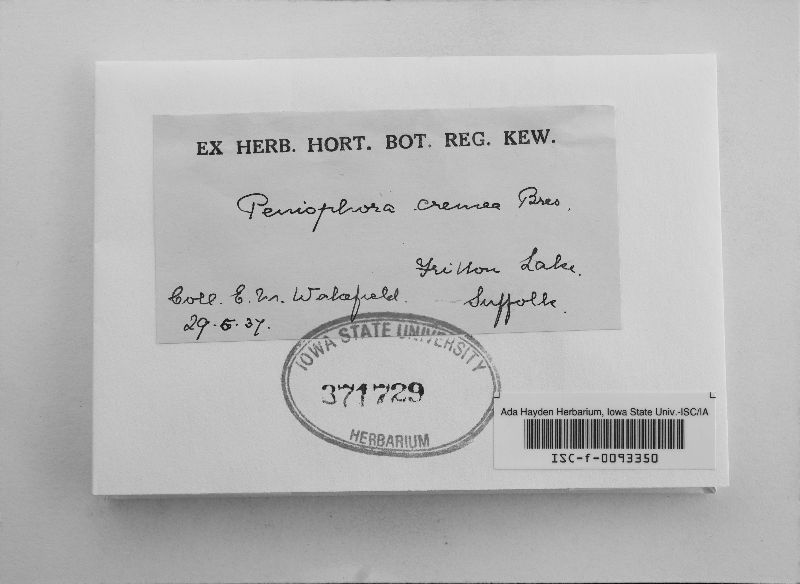 EX HERB. HORT. BOT. REG. KEW.
Peniophora cremea Bres.
Fritton Lake.
Coll. E. M. Wakefield. Suffolk.
29.5.37.
IOWA STATE UNIVERSITY
371729
HERBARIUM
Ada Hayden Herbarium, Iowa State Univ.-ISC/IA
ISC-f-0093350